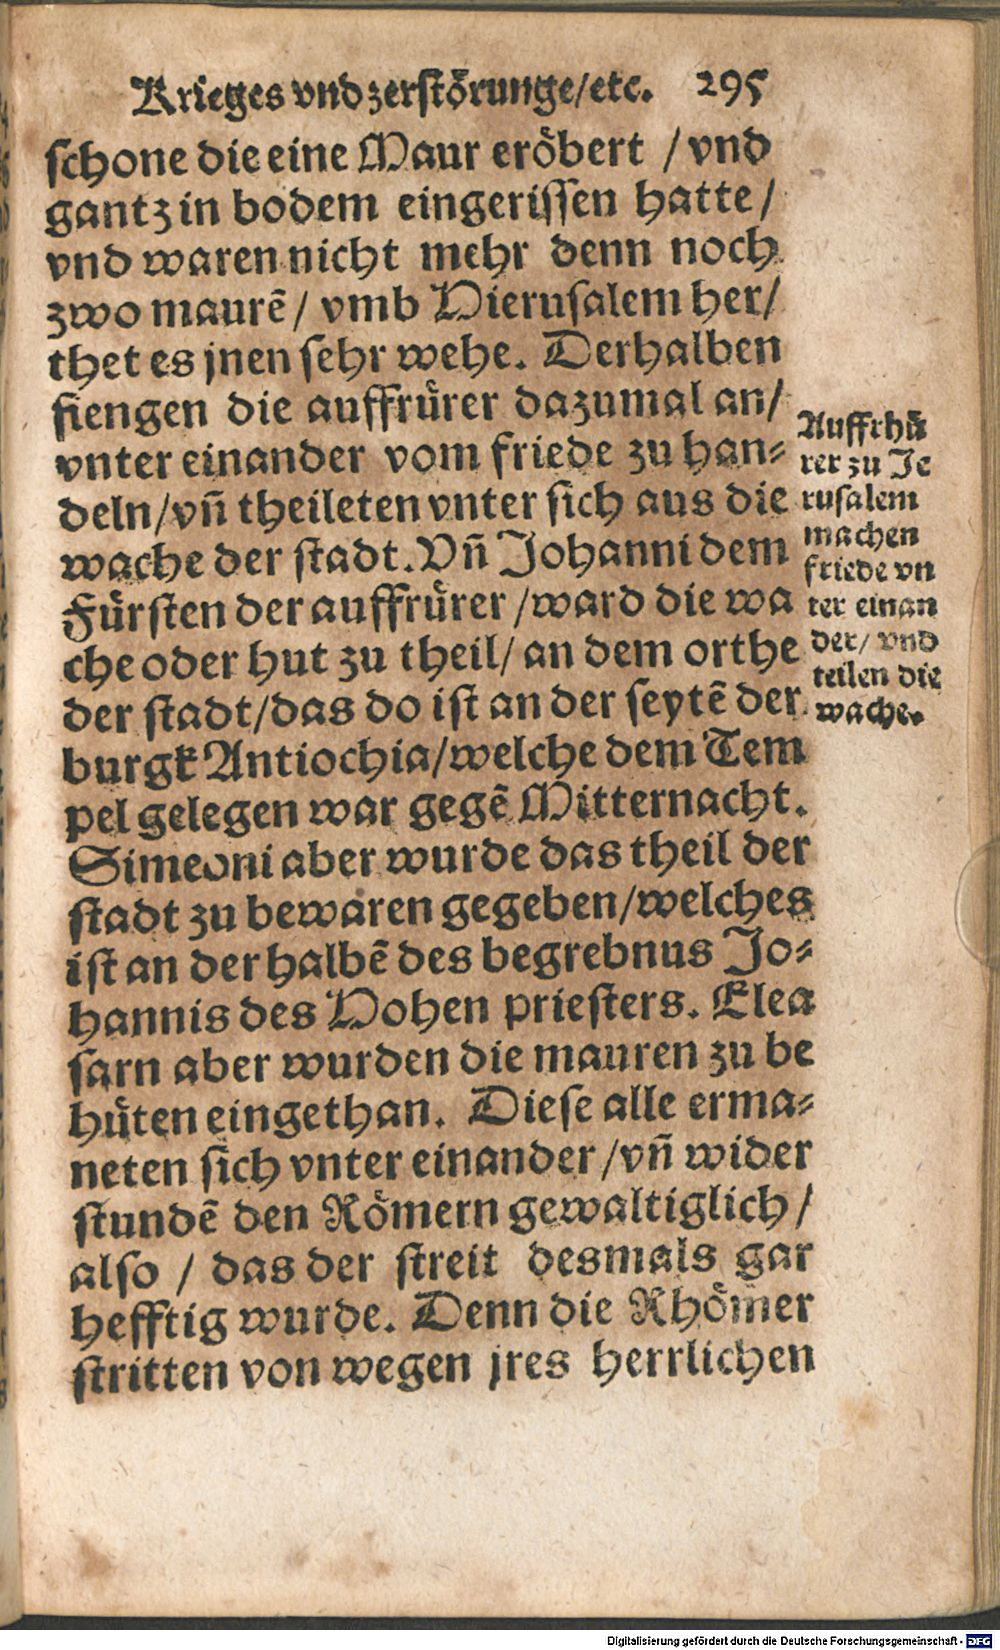 Krieges vnd zerstörunge/etc. 295
schone die eine Maur eröbert / vnd
gantz in bodem eingerissen hatte/
vnd waren nicht mehr denn noch
zwo maurē / vmb Hierusalem her/
thet es jnen sehr wehe. Derhalben
fiengen die auffrürer dazumal an/
vnter einander vom friede zu han⸗
deln/vñ theileten vnter sich aus die
wache der stadt. Vñ Johanni dem
Fürsten der auffrürer /ward die wa
che oder hut zu theil/ an dem orthe
der stadt/das do ist an der seytē der
burgk Antiochia/welche dem Tem
pel gelegen war gegē Mitternacht.
Simeoni aber wurde das theil der
stadt zu bewaren gegeben/welches
ist an der halbē des begrebnus Jo⸗
hannis des Hohen priesters. Elea
sarn aber wurden die mauren zu be
hüten eingethan. Diese alle erma⸗
neten sich vnter einander /vñ wider
stundē den Römern gewaltiglich/
also / das der streit desmals gar
hefftig wurde. Denn die Rhömer
stritten von wegen jres herrlichen
Auffrhü
rer zu Je
rusalem
machen
friede vn
ter einan
der/ vnd
teilen die
wache.
Digitalisierung gefördert durch die Deutsche Forschungsgemeinschaft - DFG